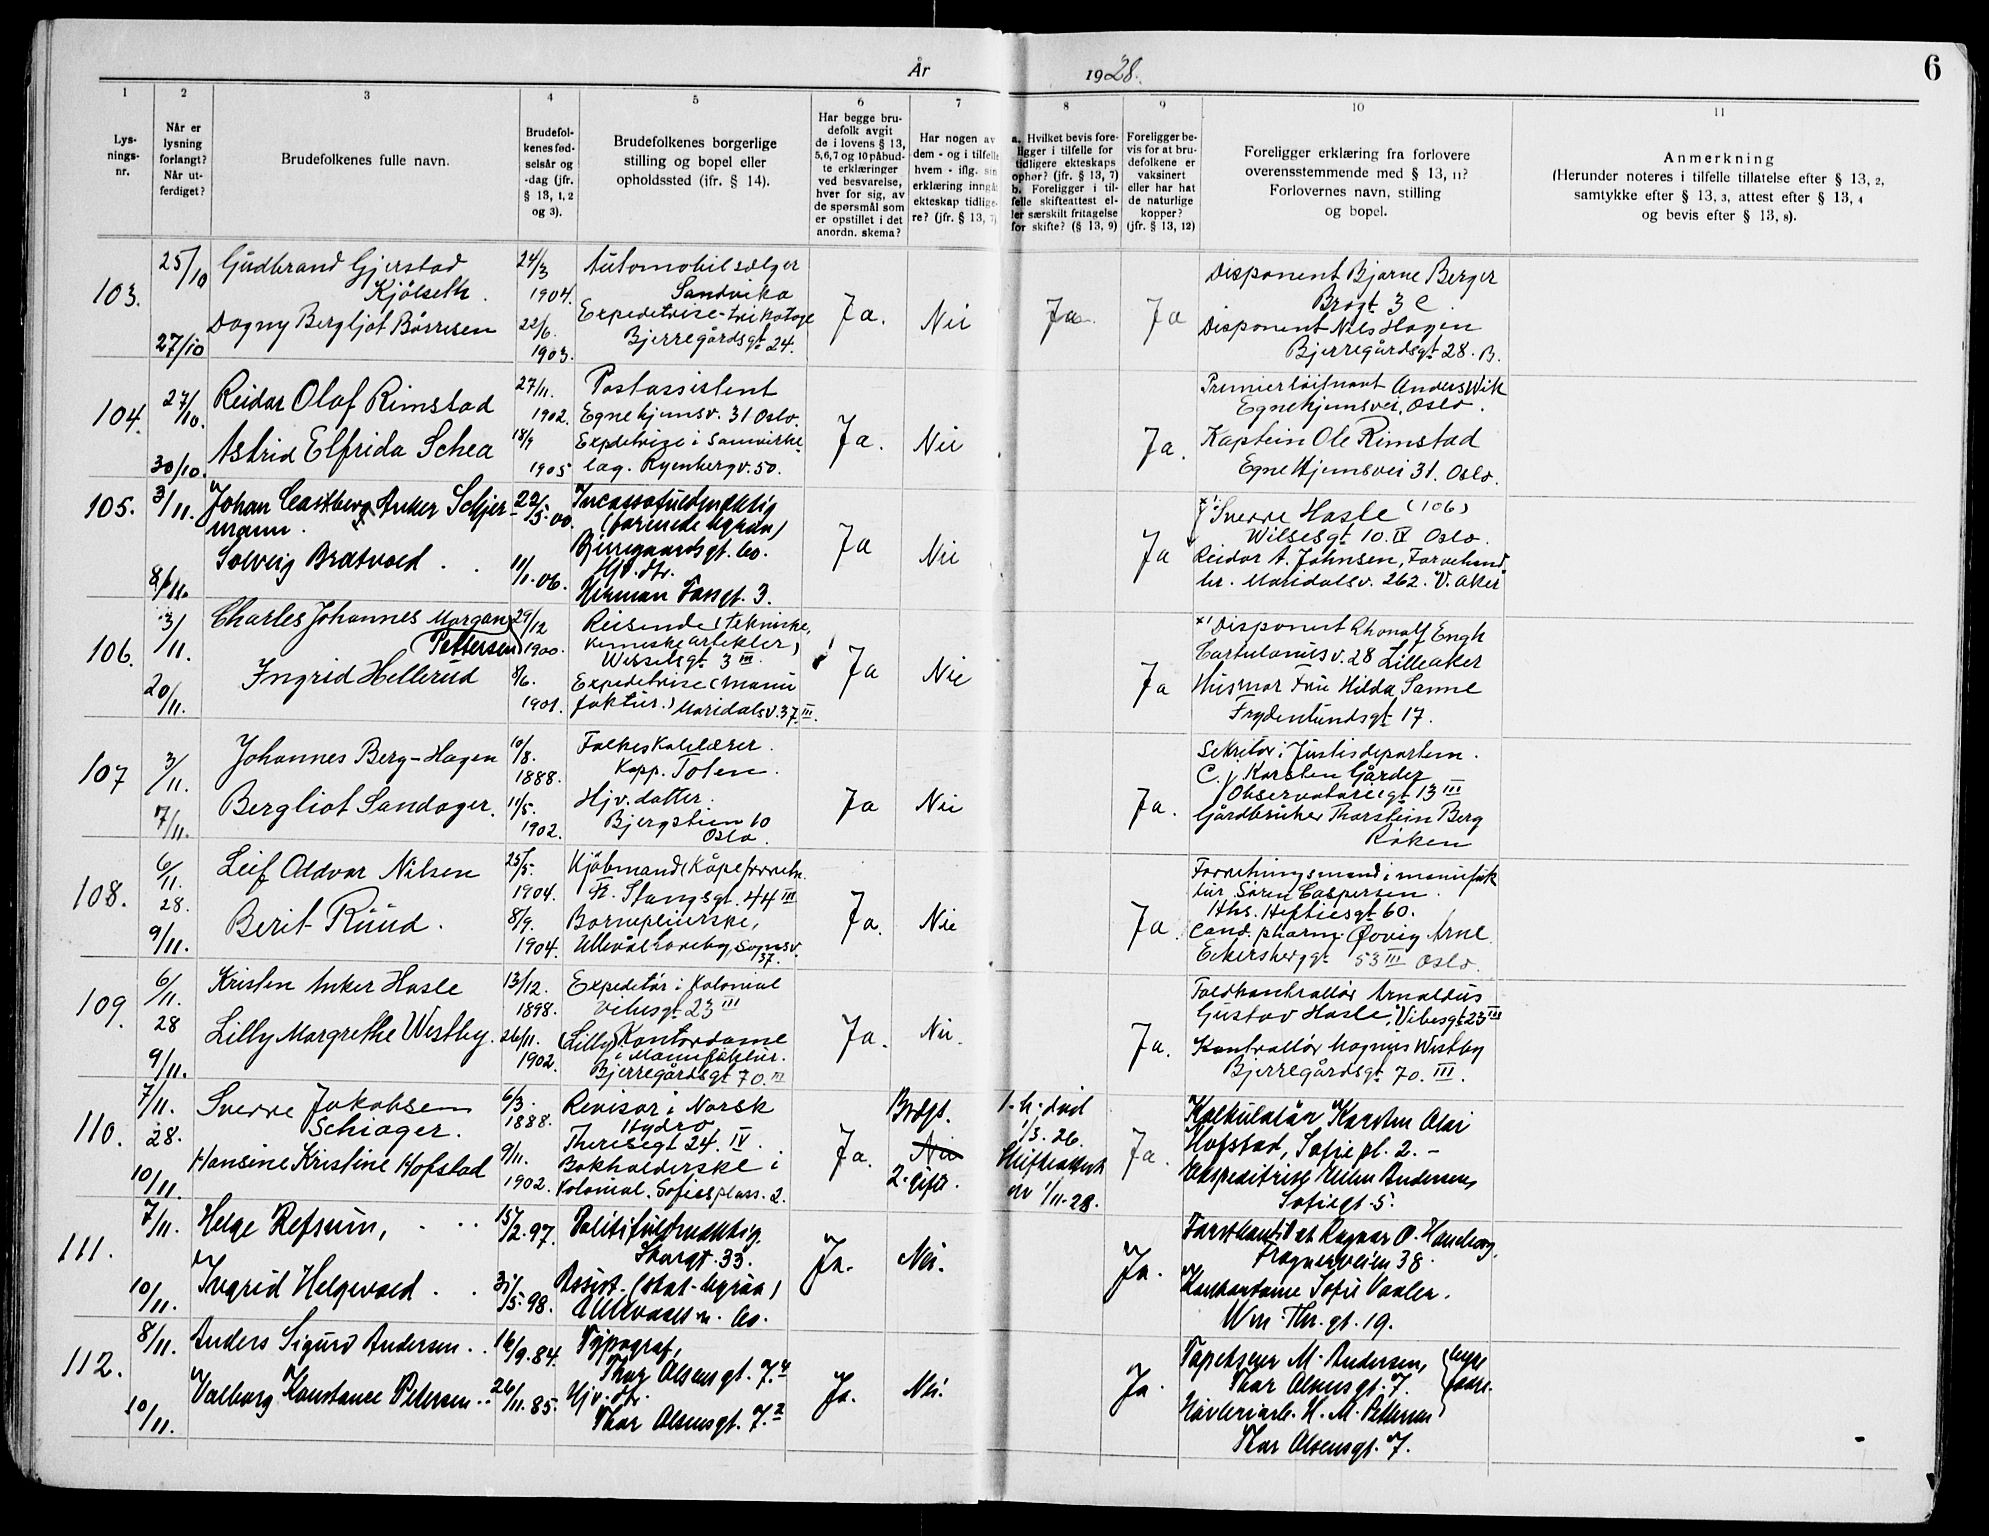 År 1928.
6
1 2 3 4 5 6 7 8 9 10 11
Lys-
nings-
nr.
Når er
lysning
forlangt?
Når ut-
ferdiget?
Brudefolkenes fulle navn.
Brudefol-
kenes fød-
selsår og
-dag (jfr.
§ 13, 1, 2
og 3).
Brudefolkenes borgerlige
stilling og bopel eller
opholdssted (ifr. § 14).
Har begge bru-
defolk avgit
de i lovens § 13,
5,6,7 og 10 påbud-
te erklæringer
ved besvarelse,
hver for sig, av
de spørsmål som
er opstillet i det
anordn. skema?
Har nogen av
dem - og i tilfelle
hvem - iflg. sin
erklæring inngåt
ekteskap tidlige-
re? (jfr. § 13, 7)
a. Hvilket bevis fore-
ligger i tilfelle for
tidligere ekteskaps
ophør? (jfr. § 13, 7)
b. Foreligger i til-
felle skifteattest el-
ler særskilt fritagelse
for skifte? (§ 13, 9)
Foreligger be-
vis for at bru-
defolkene er
vaksinert
eller har hat
de naturlige
kopper?
(jfr. § 13, 12)
Foreligger erklæring fra forlovere
overensstemmende med § 13, 11?
Forlovernes navn, stilling
og bopel.
Anmerkning
(Herunder noteres i tilfelle tillatelse efter § 13, 2,
samtykke efter § 13, 3, attest efter § 13, 4
og bevis efter § 13, 8).
103.
25/10
27/10
Gudbrand Gjerstad
Kjölseth.
Dagny Bergljot Börresen
24/3
1904.
22/6.
1903.
Automobilselger
Sandvika
Expeditrise-trikotage
Bjerregårdsgt 24.
Ja.
Nei
Ja.
Ja
Disponent Bjarne Berger
Brogt. 3 C
Disponent Nils Hagen
Bjerregårdsgt 28. B.
104.
27/10.
30/10.
Reidar Olaf Rimstad
Astrid Elfrida Schea
27/11.
1902.
18/9
1905
Postassistent
Egnehjemsv. 31 Oslo.
Expeditrise i Samvirke-
lag. Ryenbergv. 50.
Ja.
Nei
Ja.
Premierløitnant Anders Wik
Egnehjemsvei, Oslo.
Kaptein Ole Rimstad
Egne Hjemsvei 31. Oslo.
105.
3/11.
8/11.
Johan Castberg Anker Schjer-
mann.
Solveig Bratvold . .
22/5.00.
11/1.06.
Incassofuldmektig
Bjerregaardsgt. 60.
Hj.v. dtr.
Herman Fossgt. 3.
Ja
Nei
Ja
x) Sverre Hasle (106)
Wilsesgt 10. IV Oslo.
Reidar A. Johnsen, Farvehand-
ler. Maridalsv. 262. V. Aker
106.
3/11.
20/11.
Charles Johannes Morgan
Pettersen
Ingrid Hellerud
29/12
1900.
8/6.
1901.
Reisende (tekniske,
kemiske artikler)
Wesselsgt 3 III.
Expeditrise (manu
faktur.) Maridalsv. 37. III.
Ja
Nei
Ja
x) Disponent Thoralf Engh
28 Lilleaker
Husmor Fru Hilda Sanne
Frydenlundsgt 17.
107
3/11.
7/11.
Johannes Berg-Hagen
Bergliot Sandager.
10/8.
1888.
11/5.
1902.
Folkeskolelærer.
Kapp. Toten.
Hjv. datter.
Bjergstien 10
Oslo.
Ja
Nei
Ja.
Sekretær i Justisdepartem.
C. J. Karsten Gårder
Observatoriegt 13 III
Gårdbruker Thorstein Berg
Röken
108.
6/11.
28.
9/11.
Leif Oddvar Nilsen
Berit Ruud.
25/5.
1904.
8/9.
1904.
Kjöbmand (Kåpeforretn.
St. Stangsgt. 44 III
Barnepleierske,
Ullevål Haveby, Sognsv.
37.
Ja.
Nei
Ja.
Forretningsmand i manufak
tur Sören Caspersen.
Ths. Heftiesgt 60.
Cand. pharm. Arne
Eckersberggt 53 III Oslo.
109.
6/11.
28
9/11.
Kristen Anker Hasle
Lilly Margrethe Westby.
13/12.
1898.
26/11.
1902.
Expeditör i Kolonial
Vibesgt 23 III
(Lilly) Kontordame
i Manufaktur.
Bjerregårdsgt 70. III
Ja.
Nei.
Ja.
Toldkontrollör Arnoldus
Gustav Hasle, Vibesgt 23 III
Kontrollör Magnus Westby
Bjerregårdsgt 70. III.
110.
7/11.
28.
10/11.
Sverre Jakobsen
Schiager.
Hansine Kristine Hofstad
6/3.
1888.
9/11.
1902.
Revisor i Norsk
Hydro
Theresegt 24. IV.
Bokholderske i
Kolonial. Sofiesplass. 2.
Ja.
Brdgs.
Nei
2. gift.
1. h. död
1/3. 26.
Skifteattest
av 1/11-28.
Ja.
Kalkulatör Karsten Olai
Hofstad, Sofie pl. 2. -
Ekspeditrise Ellen Andersen,
Sofiegt. 5.
111.
7/11.
10/11.
Helge Refsum, . . .
Ingrid Helgevold . .
15/2. 97.
31/5. 98.
Politifuldmektig.
33.
Assist. (stat.
Ullevaalsv. 60.
Ja.
Nei.
Ja.
Forstkandidat Ragnar O. Haneborg,
Frognerveien 38.
Kontordame Sofie Vaaler.
Wm. Thr. gt. 19.
112.
8/11.
10/11.
Anders Sigurd Andersen . .
Valborg Konstance Petersen . .
16/9. 84.
26/11. 85.
Typograf,
Thor Olsensgt. 7.4
Hjv. dtr.
Thor Olsensgt. 7.2
Ja.
Nei.
Ja.
Tapetserer M. Andersen,
Thor Olsensgt. 7.
Hövleriarb. H. M. Pettersen
Thor Olsensgt. 7.
begge
fædre.